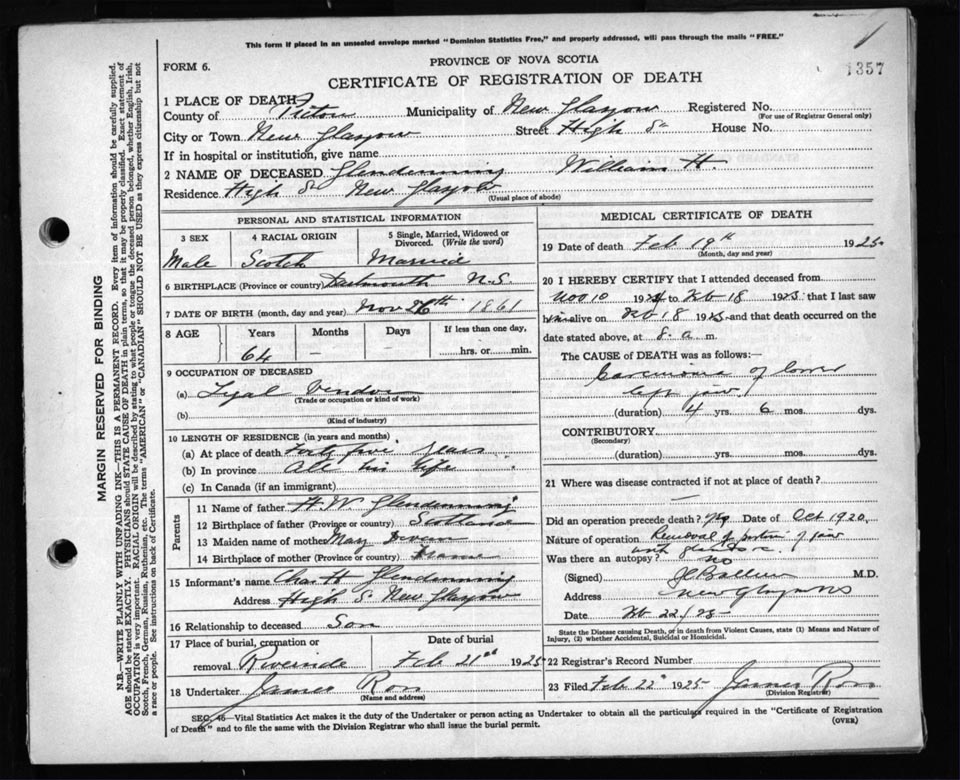 This form if placed in an unsealed envelope marked "Dominion Statistics Free," and properly addressed, will pass through the mails "FREE."
FORM 6.
PROVINCE OF NOVA SCOTIA
1357
CERTIFICATE OF REGISTRATION OF DEATH
1 PLACE OF DEATH
County of Pictou Municipality of New Glasgow Registered No.
(For use of Registrar General only)
City or Town New Glasgow Street High St House No.
If in hospital or institution, give name
2 NAME OF DECEASED Glendenning William H.
Residence High St New Glasgow
(Usual place of abode)
PERSONAL AND STATISTICAL INFORMATION
3 SEX 4 RACIAL ORIGIN 5 Single, Married, Widowed or Divorced. (Write the word)
Male Scotch Married
6 BIRTHPLACE (Province or country) Dartmouth N.S.
7 DATE OF BIRTH (month, day and year) Nov 26th 1861
8 AGE Years Months Days If less than one day,
64 — — hrs. or min.
9 OCCUPATION OF DECEASED
(a) Vendor
(Trade or occupation or kind of work)
(b)
(Kind of industry)
10 LENGTH OF RESIDENCE (in years and months)
(a) At place of death Forty five years
(b) In province All his life
(c) In Canada (if an immigrant)
Parents
11 Name of father H. W Glendenning
12 Birthplace of father (Province or country) Scotland
13 Maiden name of mother May
14 Birthplace of mother (Province or country)
15 Informant's name Chas H Glendenning
Address High St New Glasgow
16 Relationship to deceased Son
17 Place of burial, cremation or removal Riverside
Date of burial
Feb 21st 1925
18 Undertaker James Ross
(Name and address)
MEDICAL CERTIFICATE OF DEATH
19 Date of death Feb 19th 1925
(Month, day and year)
20 I HEREBY CERTIFY that I attended deceased from
Nov 10 1924 to Feb 18 1925 that I last saw
him alive on Feb 18 1925 and that death occurred on the
date stated above, at 8 a m.
The CAUSE of DEATH was as follows:—
Carcinoma of lower
left jaw
(duration) 4 yrs. 6 mos. dys.
CONTRIBUTORY
(Secondary)
(duration) yrs. mos. dys.
21 Where was disease contracted if not at place of death?
—
Did an operation precede death? Yes Date of Oct 1920
Nature of operation Removal of portion of jaw
with glands
Was there an autopsy? no
(Signed) M.D.
Address New Glasgow NS
Date Feb 22/25
State the Disease causing Death, or in death from Violent Causes, state (1) Means and Nature of Injury, (2) whether Accidental, Suicidal or Homicidal.
22 Registrar's Record Number
23 Filed Feb 22 1925 James Ross
(Division Registrar)
SEC. 46—Vital Statistics Act makes it the duty of the Undertaker or person acting as Undertaker to obtain all the particulars required in the "Certificate of Registration
of Death" and to file the same with the Division Registrar who shall issue the burial permit.
(OVER)
MARGIN RESERVED FOR BINDING
N.B.—WRITE PLAINLY WITH UNFADING INK—THIS IS A PERMANENT RECORD. Every item of information should be carefully supplied.
AGE should be stated EXACTLY. PHYSICIANS should STATE CAUSE OF DEATH in plain terms, so that it may be properly classified. Exact statement of
OCCUPATION is very important. RACIAL ORIGIN will be described by stating to what people or tongue the deceased person belonged, whether English, Irish,
Scotch, French, German, Russian, Ruthenian, etc. The terms "AMERICAN" or "CANADIAN" SHOULD NOT BE USED as they express citizenship but not
a race or people. See instructions on back of Certificate.